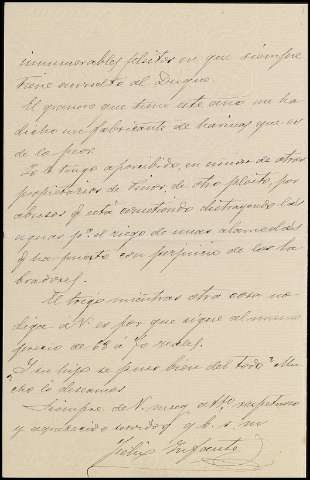 innumerables pleitos en que siempre
tiene envuelto al Duque.
El granero que tiene este año me ha
dicho un fabricante de harinas que es
de lo peor.
Lo tengo apercibido, en union de otros
propietarios de de otro pleito, por
abusos q está cometiendo distrayendo las
aguas pª el riego de unas alamedas
q ha puesto con perjuicio de los la-
bradores.
El trigo mientras otra cosa no
diga a V. es por que sigue al mismo
precio de 69 á 70 reales.
Y su hijo se puso bien del todo? Mu-
cho lo deseamos
Siempre de V. muy affº respetuoso
y agradecido servidor q b. s. m
Felix Infante